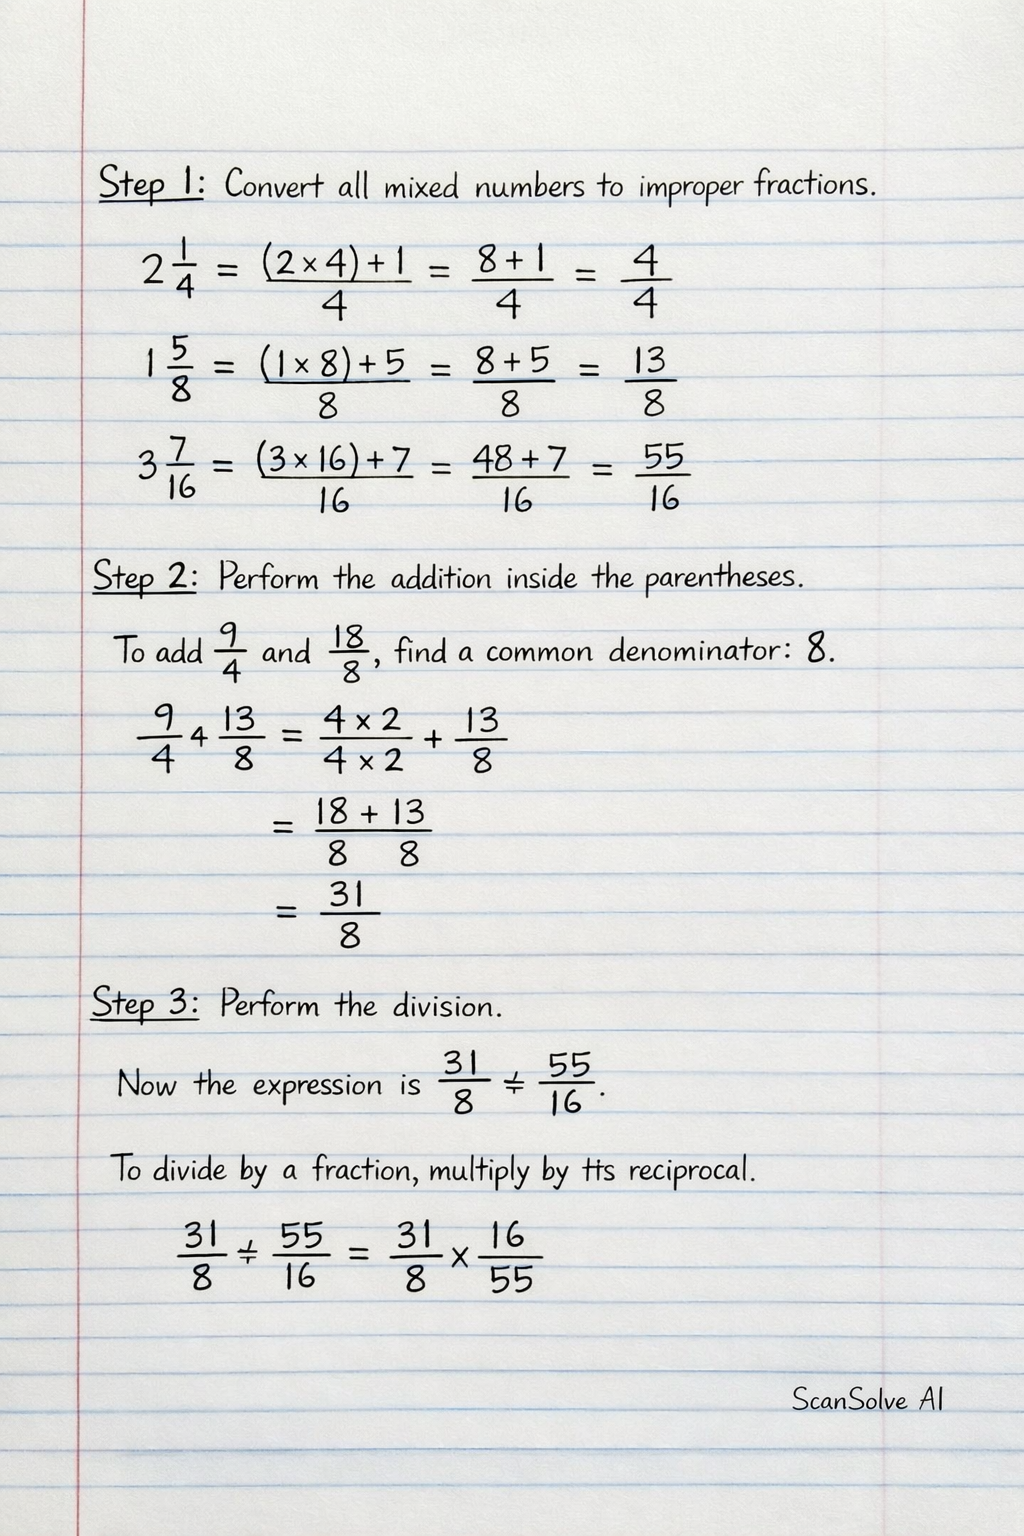 Step 1: Convert all mixed numbers to improper fractions.
2 1/4 = (2 × 4) + 1 / 4 = 8 + 1 / 4 = 4/4
1 5/8 = (1 × 8) + 5 / 8 = 8 + 5 / 8 = 13/8
3 7/16 = (3 × 16) + 7 / 16 = 48 + 7 / 16 = 55/16
Step 2: Perform the addition inside the parentheses.
To add 9/4 and 18/8, find a common denominator: 8.
9/4 4 13/8 = 4 × 2 / 4 × 2 + 13/8
= 18 + 13 / 8 8
= 31/8
Step 3: Perform the division.
Now the expression is 31/8 ÷ 55/16.
To divide by a fraction, multiply by tts reciprocal.
31/8 ÷ 55/16 = 31/8 × 16/55
ScanSolve AI